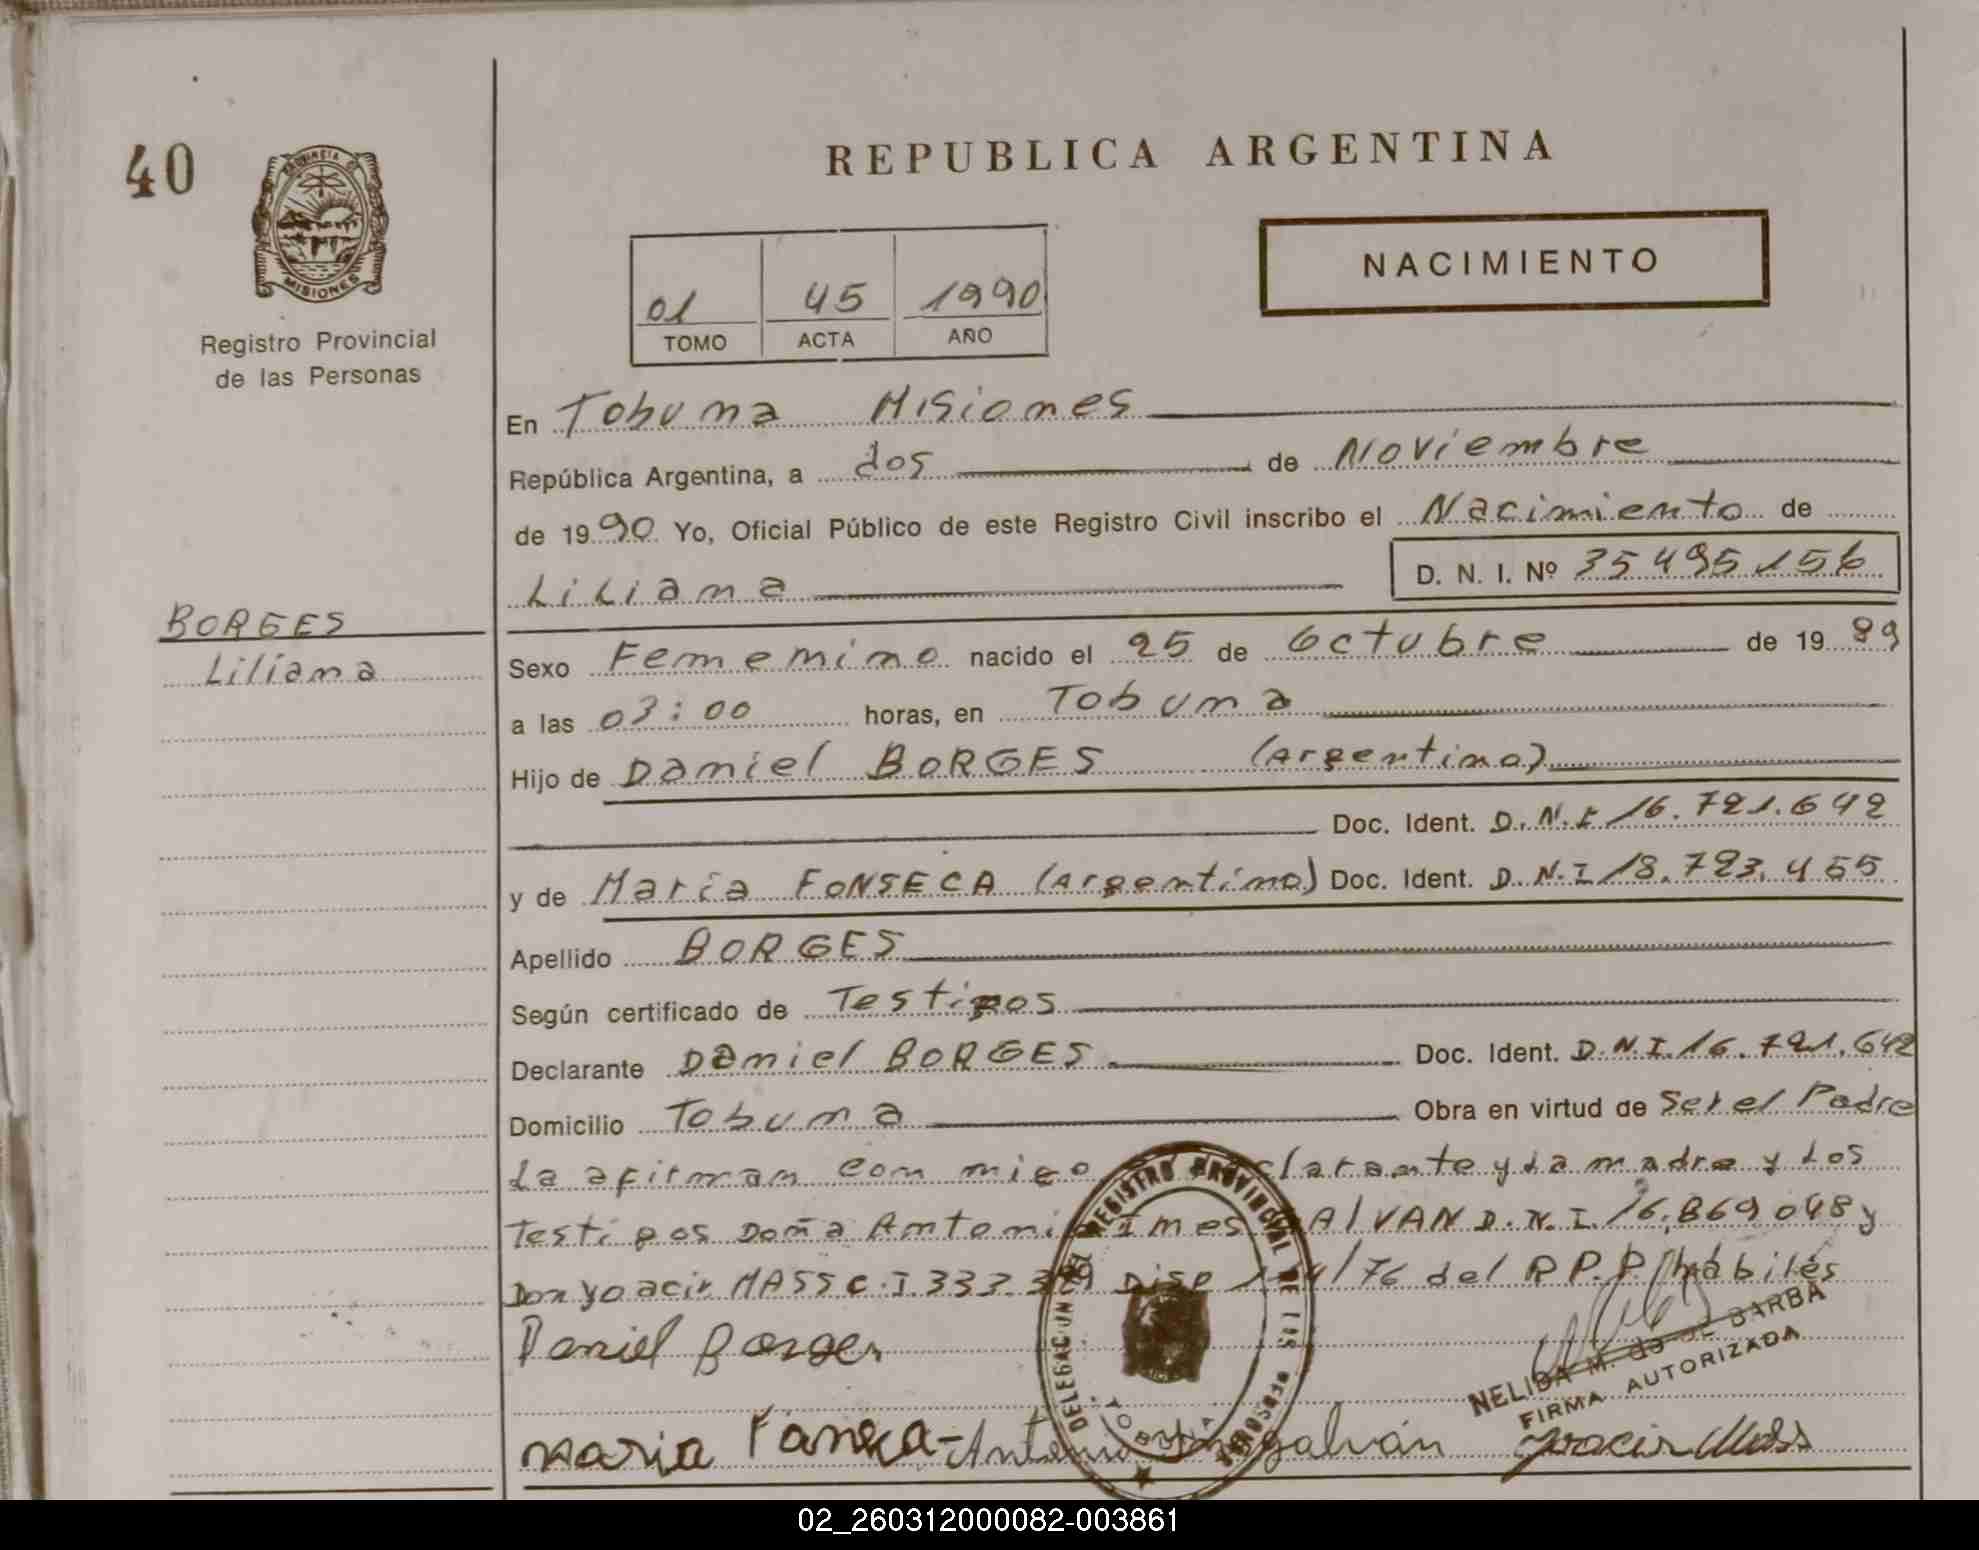 40
REPUBLICA ARGENTINA
PROVINCIA DE
MISIONES
NACIMIENTO
01 45 1990
TOMO ACTA AÑO
Registro Provincial
de las Personas
En Tobuna Misiones
República Argentina, a dos de Noviembre
de 1990 Yo, Oficial Público de este Registro Civil inscribo el Nacimiento de
Liliana D. N. I. Nº 35495156
BORGES
Liliana
Sexo Femenino nacido el 25 de Octubre de 1989
a las 03:00 horas, en Tobuna
Hijo de Daniel BORGES (Argentino)
Doc. Ident. D.N.I 16.721.642
y de Maria FONSECA (Argentina) Doc. Ident. D.N.I 18.723.455
Apellido BORGES
Según certificado de Testigos
Declarante Daniel BORGES Doc. Ident. D.N.I. 16.721.642
Domicilio Tobuna Obra en virtud de Ser el Padre
La afirman con migo clarante y La madre y Los
Testigos Doña Antonia Ines GALVAN D.N.I. 16.869.048 y
Don Yoacir MASS C.I 333.3 Disp /76 del R.P.P. hábiles
DELEGACION REGISTRO PROVINCIAL DE LAS PERSONAS
TOBUNA
Daniel Borges
NELIDA M. de BARBA
FIRMA AUTORIZADA
Maria Fonseca - Antonia galván Yoacir Mass
02_260312000082-003861